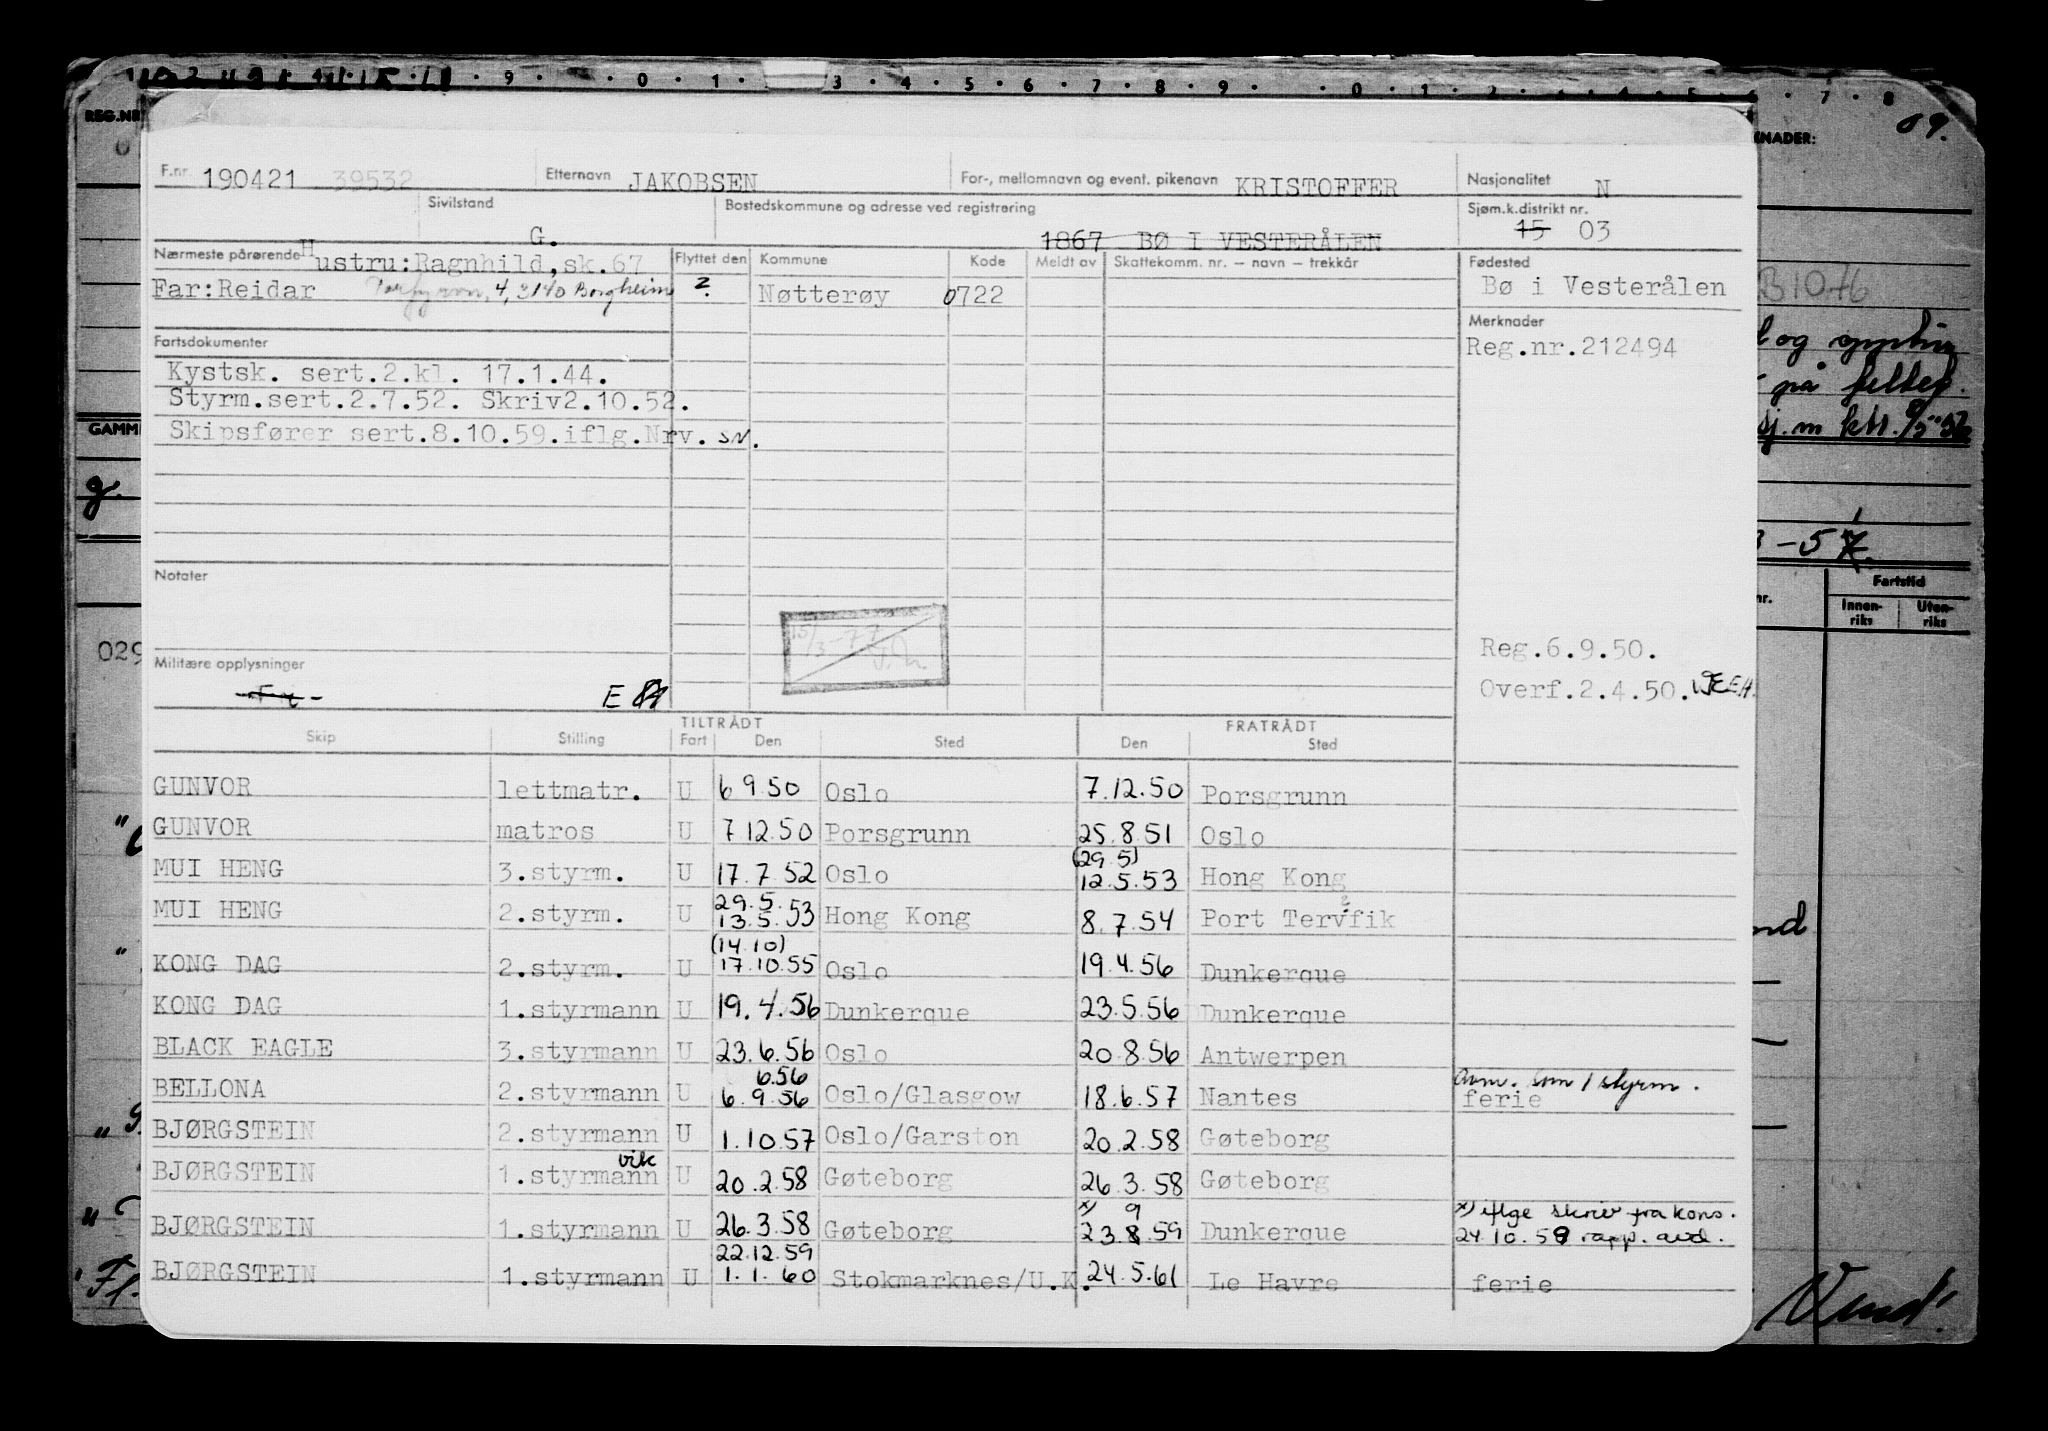 REG.NR
09.
F.nr. 190421 39532 Etternavn JAKOBSEN For-, mellomnavn og event. pikenavn KRISTOFFER Nasjonalitet N
Sivilstand G. Bostedskommune og adresse ved registrering 1867 BØ I VESTERÅLEN Sjøm.k.distrikt nr. 15 03
Nærmeste pårørende Hustru:Ragnhild,sk.67 Flyttet den Kommune Kode Meldt av Skattekomm. nr. – navn – trekkår Fødested
Far:Reidar 4, 3140 Borgheim ? Nøtterøy 0722 Bø i Vesterålen
Merknader
Reg.nr.212494
Fartsdokumenter
Kystsk. sert.2.kl. 17.1.44.
Styrm.sert.2.7.52. Skriv2.10.52.
Skipsfører sert.8.10.59.iflg.Nrv. SN.
Notater
15/3-77
Reg.6.9.50.
Militære opplysninger
E
Overf.2.4.50.
TILTRÅDT FRATRÅDT
Skip Stilling Fart Den Sted Den Sted
GUNVOR lettmatr. U 6 9.50 Oslo 7.12.50 Porsgrunn
GUNVOR matros U 7 12.50 Porsgrunn 25.8.51 Oslo
(29.5)
MUI HENG 3.styrm. U 17.7.52 Oslo 12.5.53 Hong Kong
29.5.
MUI HENG 2.styrm. U 13.5.53 Hong Kong 8.7.54 Port Tervfik
(14.10)
KONG DAG 2.styrm. U 17.10.55 Oslo 19.4.56 Dunkerque
KONG DAG 1.styrmann U 19.4.56 Dunkerque 23.5.56 Dunkerque
BLACK EAGLE 3.styrmann U 23.6.56 Oslo 20.8.56 Antwerpen
6.56 avm. som 1 styrm.
BELLONA 2.styrmann U 6.9.56 Oslo/Glasgow 18.6.57 Nantes ferie
BJØRGSTEIN 2.styrmann U 1.10.57 Oslo/Garston 20.2.58 Gøteborg
vik
BJØRGSTEIN 1.styrmann U 20.2.58 Gøteborg 26.3.58 Gøteborg
x) 9 x) iflge skriv fra kons.
BJØRGSTEIN 1.styrmann U 26.3.58 Gøteborg 23.8.59 Dunkerque 24.10.59 rapp. avd.
22.12.59
BJØRGSTEIN 1.styrmann U 1.1.60 Stokmarknes/U.K. 24.5.61 Le Havre ferie
KNADER:
B1076
på feltet.
GAMM
g.
029
Fartstid
Innen-riks Uten-riks
Vend!